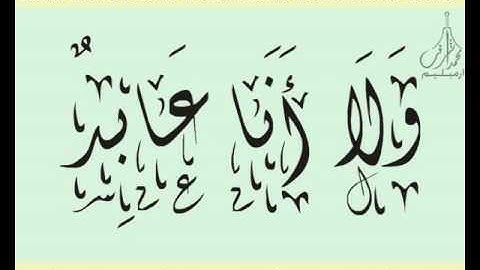 وَلَا أَنَا عَابِدٌ